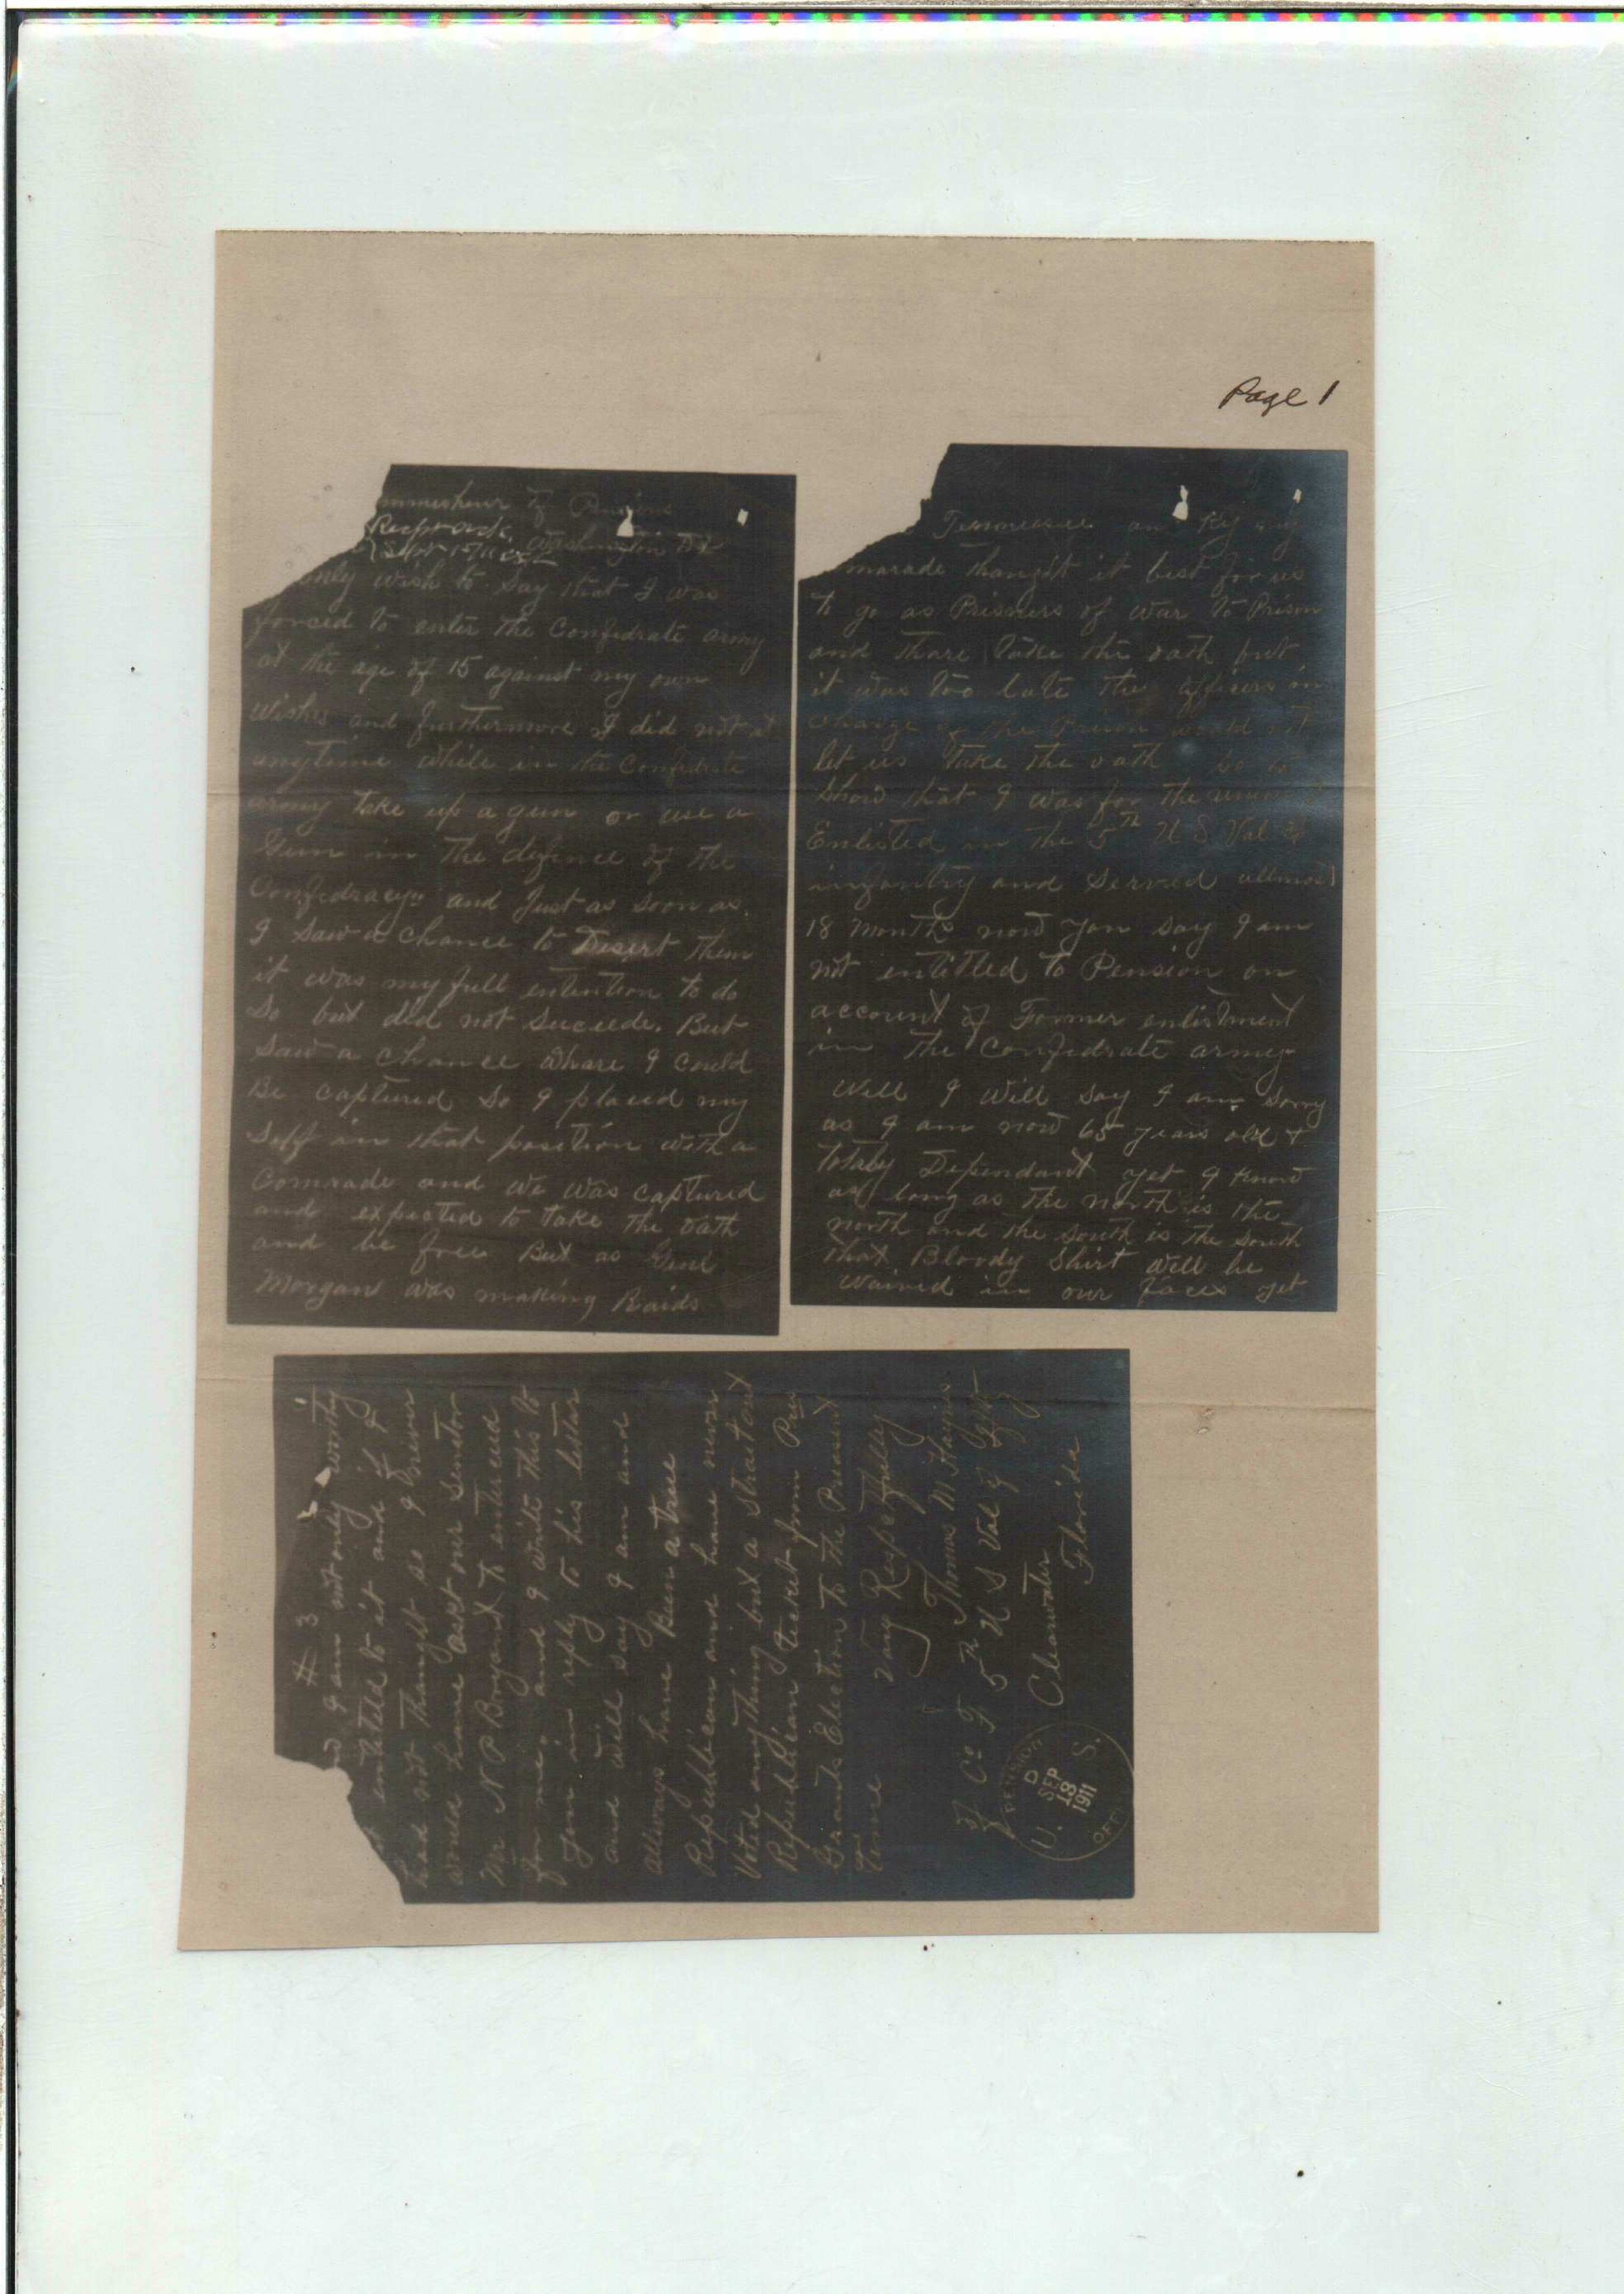 Page 1
mmissioner of Pensions
Washington DC
only wish to say that I was
forced to enter the Confedrate army
at the age of 15 against my own
wishes and furthermore I did not at
anytime while in the Confedrate
army take up a gun or use a
Gun in the defence of the
Confedracy and Just as soon as
I saw a chance to Desert them
it was my full entention to do
So but did not Suciede. But
Saw a chance whare I could
Be captured So I placed my
Self in that position with a
Comrade and we was captured
and expected to take the oath
and be free But as Genl
Morgan was making Raids
Tennessee an Ky my
marade thought it best for us
to go as Prisners of war to Prison
and thare take the oath but
it was too late the officers in
charge of the Prison would not
let us take the oath So to
Show that I was for the union
Enlisted in the 5th U S Vol
infantry and Served allmost
18 months now you say I am
not entitled to Pension on
account of Former enlistment
in the Confedrate army
Well I will say I am sorry
as I am now 65 years old &
totaly Dependant yet I know
as long as the north is the
north and the south is the south
that Bloody Shirt will be
waived in our faces yet
# 3
I am not only worthy
entitled to it and if I
had not thought as I Never
would have askt our Senator
Mr N P Bryant to entercead
for me. and I write this to
you in reply to his letter
and will say I am and
allways have Been a true
Republican and have never
Voted anything but a straitout
Republican ticket from Pres
Grants Election to the Preasent
Time
Very Respectfully
Thomas M
Co F 5th U S Vol
Clearwater
Florida
U. S.
PENSION
SEP
18
1911
OFFI